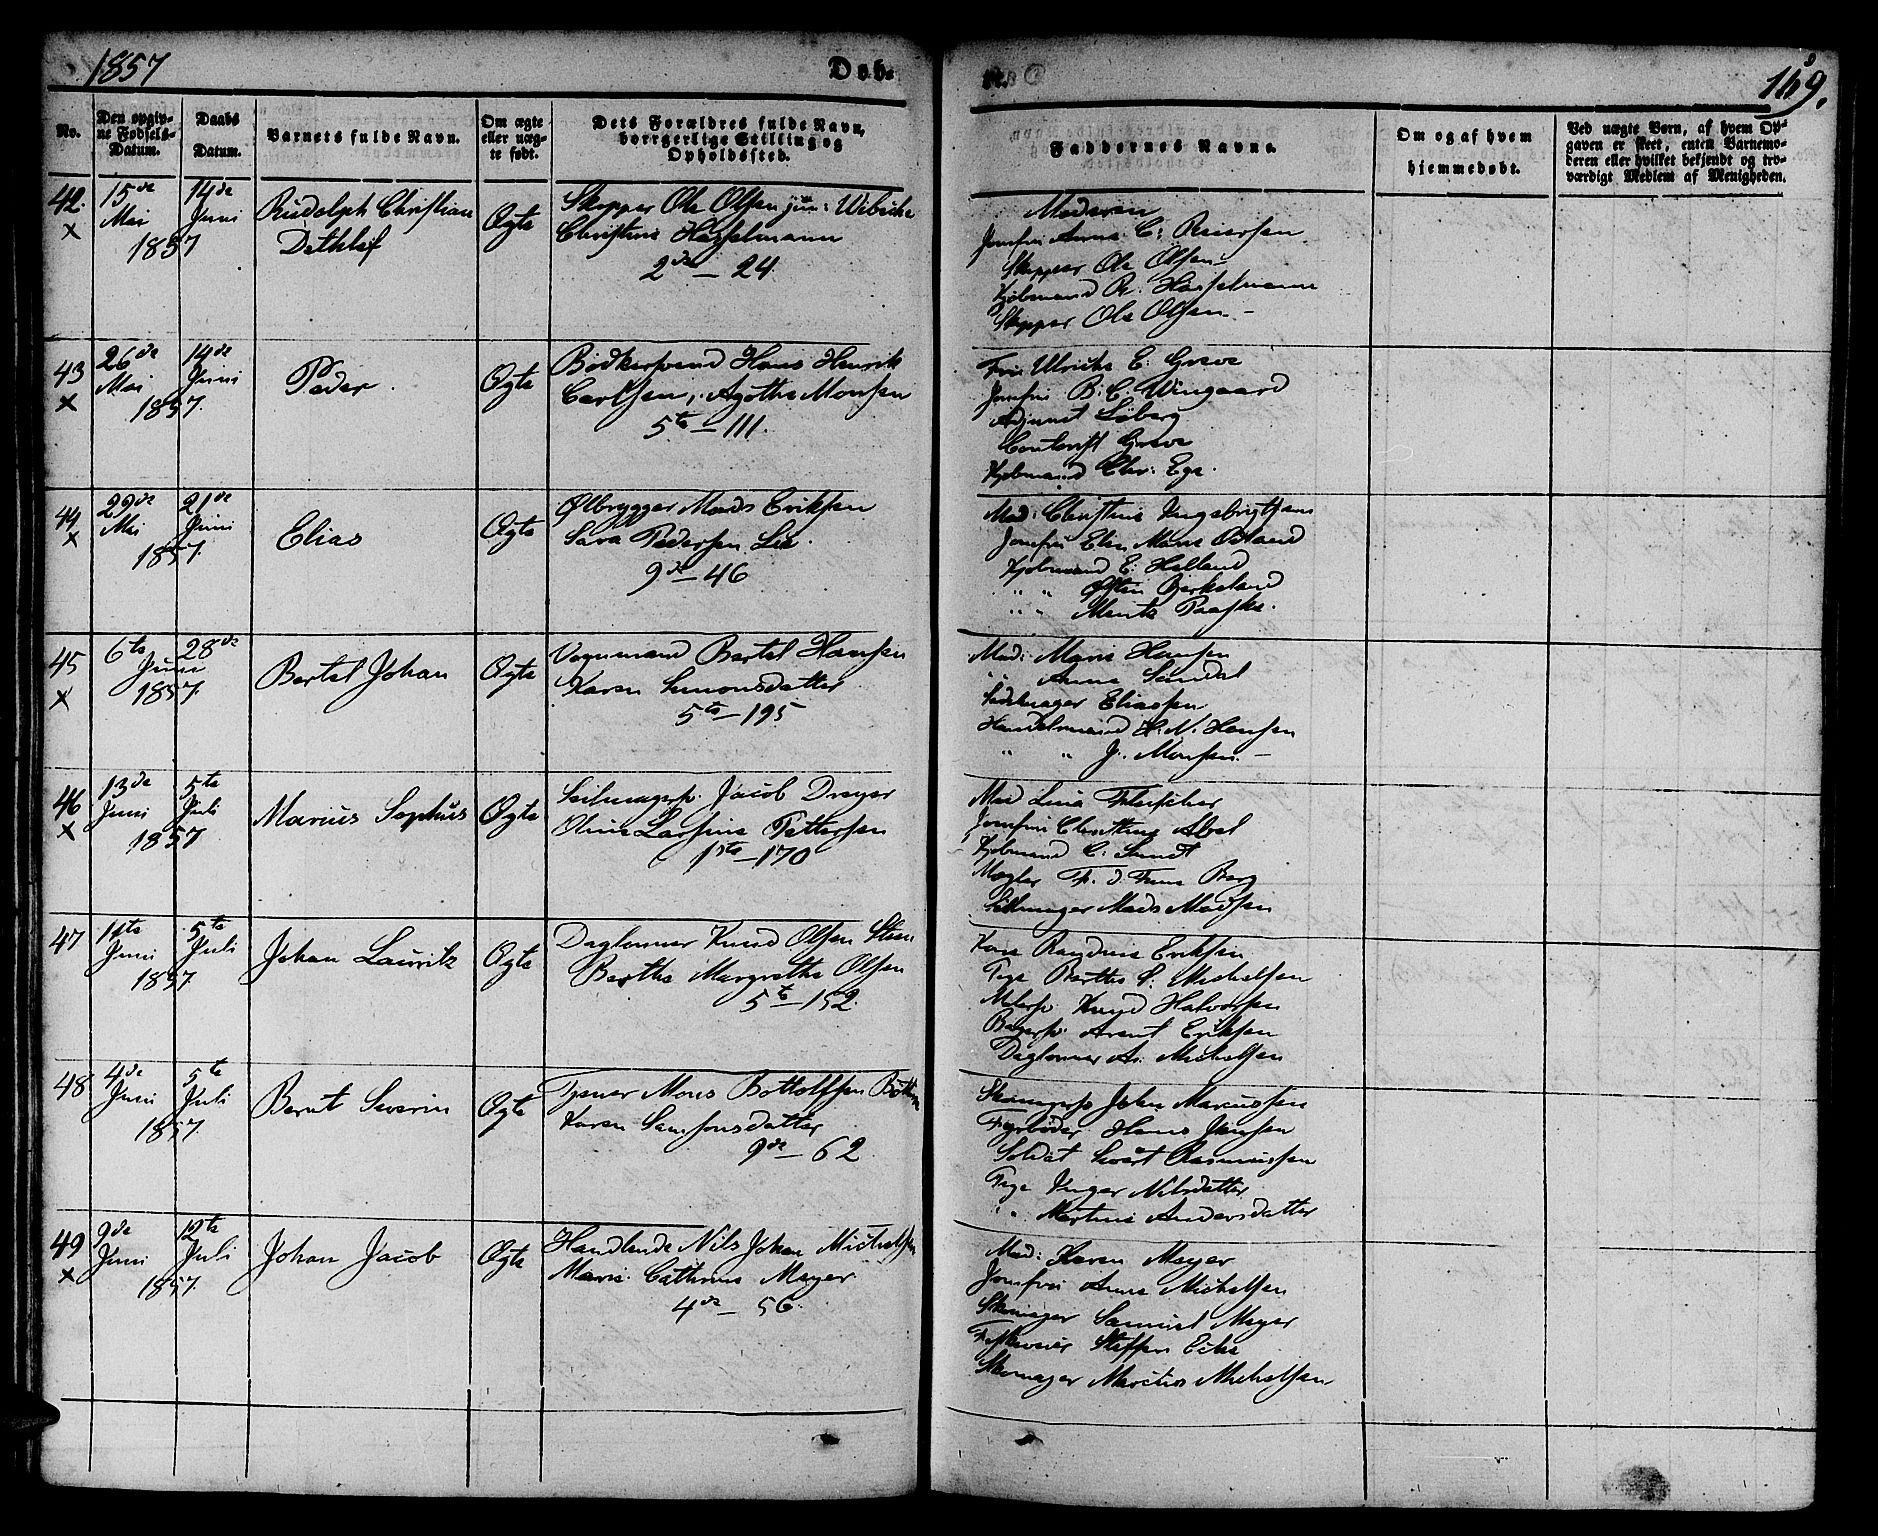 1857
Døb-
te.
169.
No.
Den opgiv-
ne Fødsels-
Datum.
Daabs
Datum.
Barnets fulde Navn.
Om ægte
eller uæg-
te født.
Dets Forældres fulde Navn,
borgerlige Stilling og
Opholdssted.
Faddernes Navne.
Om og af hvem
hjemmedøbt.
Ved uægte Børn, af hvem Op-
gaven er skeet, enten Barnemo-
deren eller hvilket bekjendt og tro-
værdigt Medlem af Menigheden.
42.
x
15de
Mai
14de
Juni
1857
Rudolph Christian
Dethlef
Ægte
Skipper Ole Olsen jun: Wibicke
Christine Hasselmann
2de - 24
Moderen
Jomfru Anna C: Reiersen
Skipper Ole Olsen
Kjøbmand R. Hasselmann
Skipper Ole Olsen
43
x
26de
Mai
14de
Juni
1857.
Peder.
Ægte
Bødkersvend Hans Henrik
Carlsen, Agathe Monsen
5te - 111.
Fru Ulricke E. Greve
Jomfru B. C. Wingaard
Adjunct Løberg
Greve
Kjøbmand Chr. Ege.
44
x
29de
Mai
21de
Juni
1857.
Elias
Ægte
Ølbrygger Mads Eriksen
Sara Pedersen Lie
9de - 46
Mad: Christine Ingebrigtsen
Jomfru Elen Marie
Kjøbmand E: Helland
" " Østen Birkeland
" " Mentz Paaske.
45
x
6te
28de
Juni
1857.
Bertel Johan
Ægte
Vognmand Bertel Hansen
Karen Simonsdatter
5te - 195
Mad: Marie Hansen
" Anna Sundal
Eliassen
Handelsmand H. N. Hansen
" " J. Monsen.
46
x
13de
Juni
5te
Juli
1857
Marius Sophus
Ægte
Seilmagersv. Jacob Dreyer
Oline Larsine Pettersen
1ste - 170
Mad Lina Fleischer
Jomfru Christine Abel
Kjøbmand C: Sundt
Mægler Berg
Seilmager Mads Madsen
47
11te
Juni
5te
Juli
1857
Johan Lauritz
Ægte
Daglønner Knud Olsen Steen
Berthe Margrethe Olsen
5te - 152.
Kone Randine Eriksen
Pige Berthe C. Michelsen
Malersv Knud Halvorsen
Bagersv. Arent Eriksen
Daglønner A. Michelsen
48
4de
Juni
5te
Juli
1857.
Bernt Severin
Ægte
Mons Bottolfsen
Karen Samsonsdatter
9de - 62
Skomagersv John Marcussen
Fyrbøder Hans Jansen
Soldat Sivert Rasmussen
Pige Inger Nilsdatter
" Martine Andersdatter
49
x
9de
Juni
12te
Juli
1857.
Johan Jacob
Ægte
Handlende Nils Johan Michelsen
Marie Cathrine Meyer
4de - 56.
Mad: Karen Meyer
Jomfru Anna Michelsen
Skomager Samuel Meyer
Steffen
Skomager Marcus Michelsen